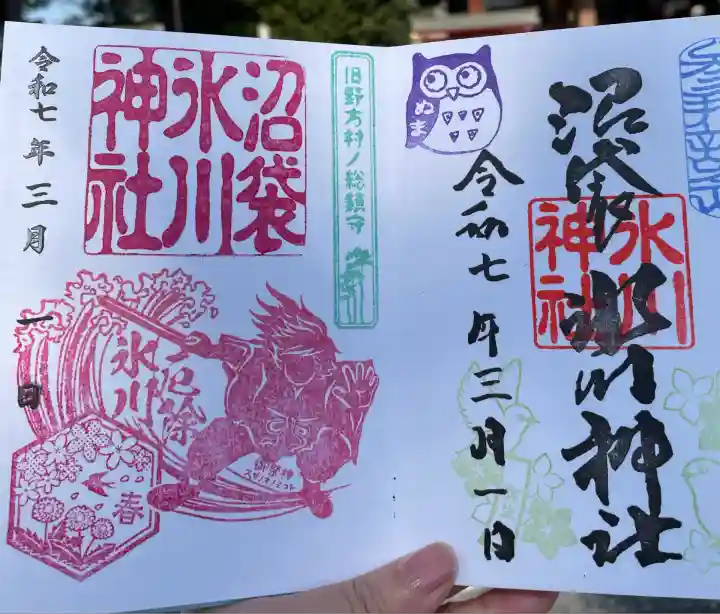 沼袋
氷川
神社
旧野方村ノ総鎮守
令和七年三月一日
厄除
氷川
御祭神
スサノオノミコト
春
ぬま
沼袋氷川神社
氷川
神社
令和七年三月一日